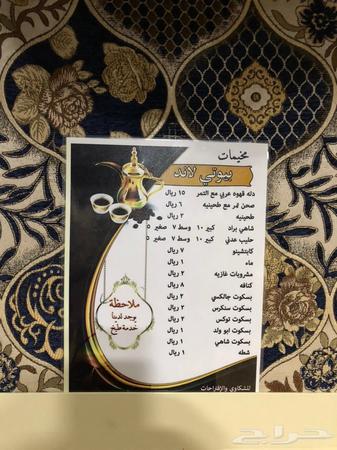 مخيمات
بيوتي لاند
دله قهوه عربي مع التمر ١٥ ريال
صحن تمر مع طحينيه ٦ ريال
طحينيه ٢ ريال
شاهي براد كبير ١٠ وسط ٧ صغير ٥
حليب عدني كبير ١٠ وسط ٧ صغير ٥
كابتشينو ٧ ريال
ماء ١ ريال
مشروبات غازيه ٢ ريال
كنافه ٨ ريال
بسكوت جالكسي ٢ ريال
بسكوت سنكرس ٢ ريال
بسكوت توكس ٢ ريال
بسكوت ابو ولد ١ ريال
بسكوت شاهي ١ ريال
شطه ١ ريال
ملاحظة
يوجد لدينا
خدمة طبخ
للشكاوي والإقتراحات
حراج